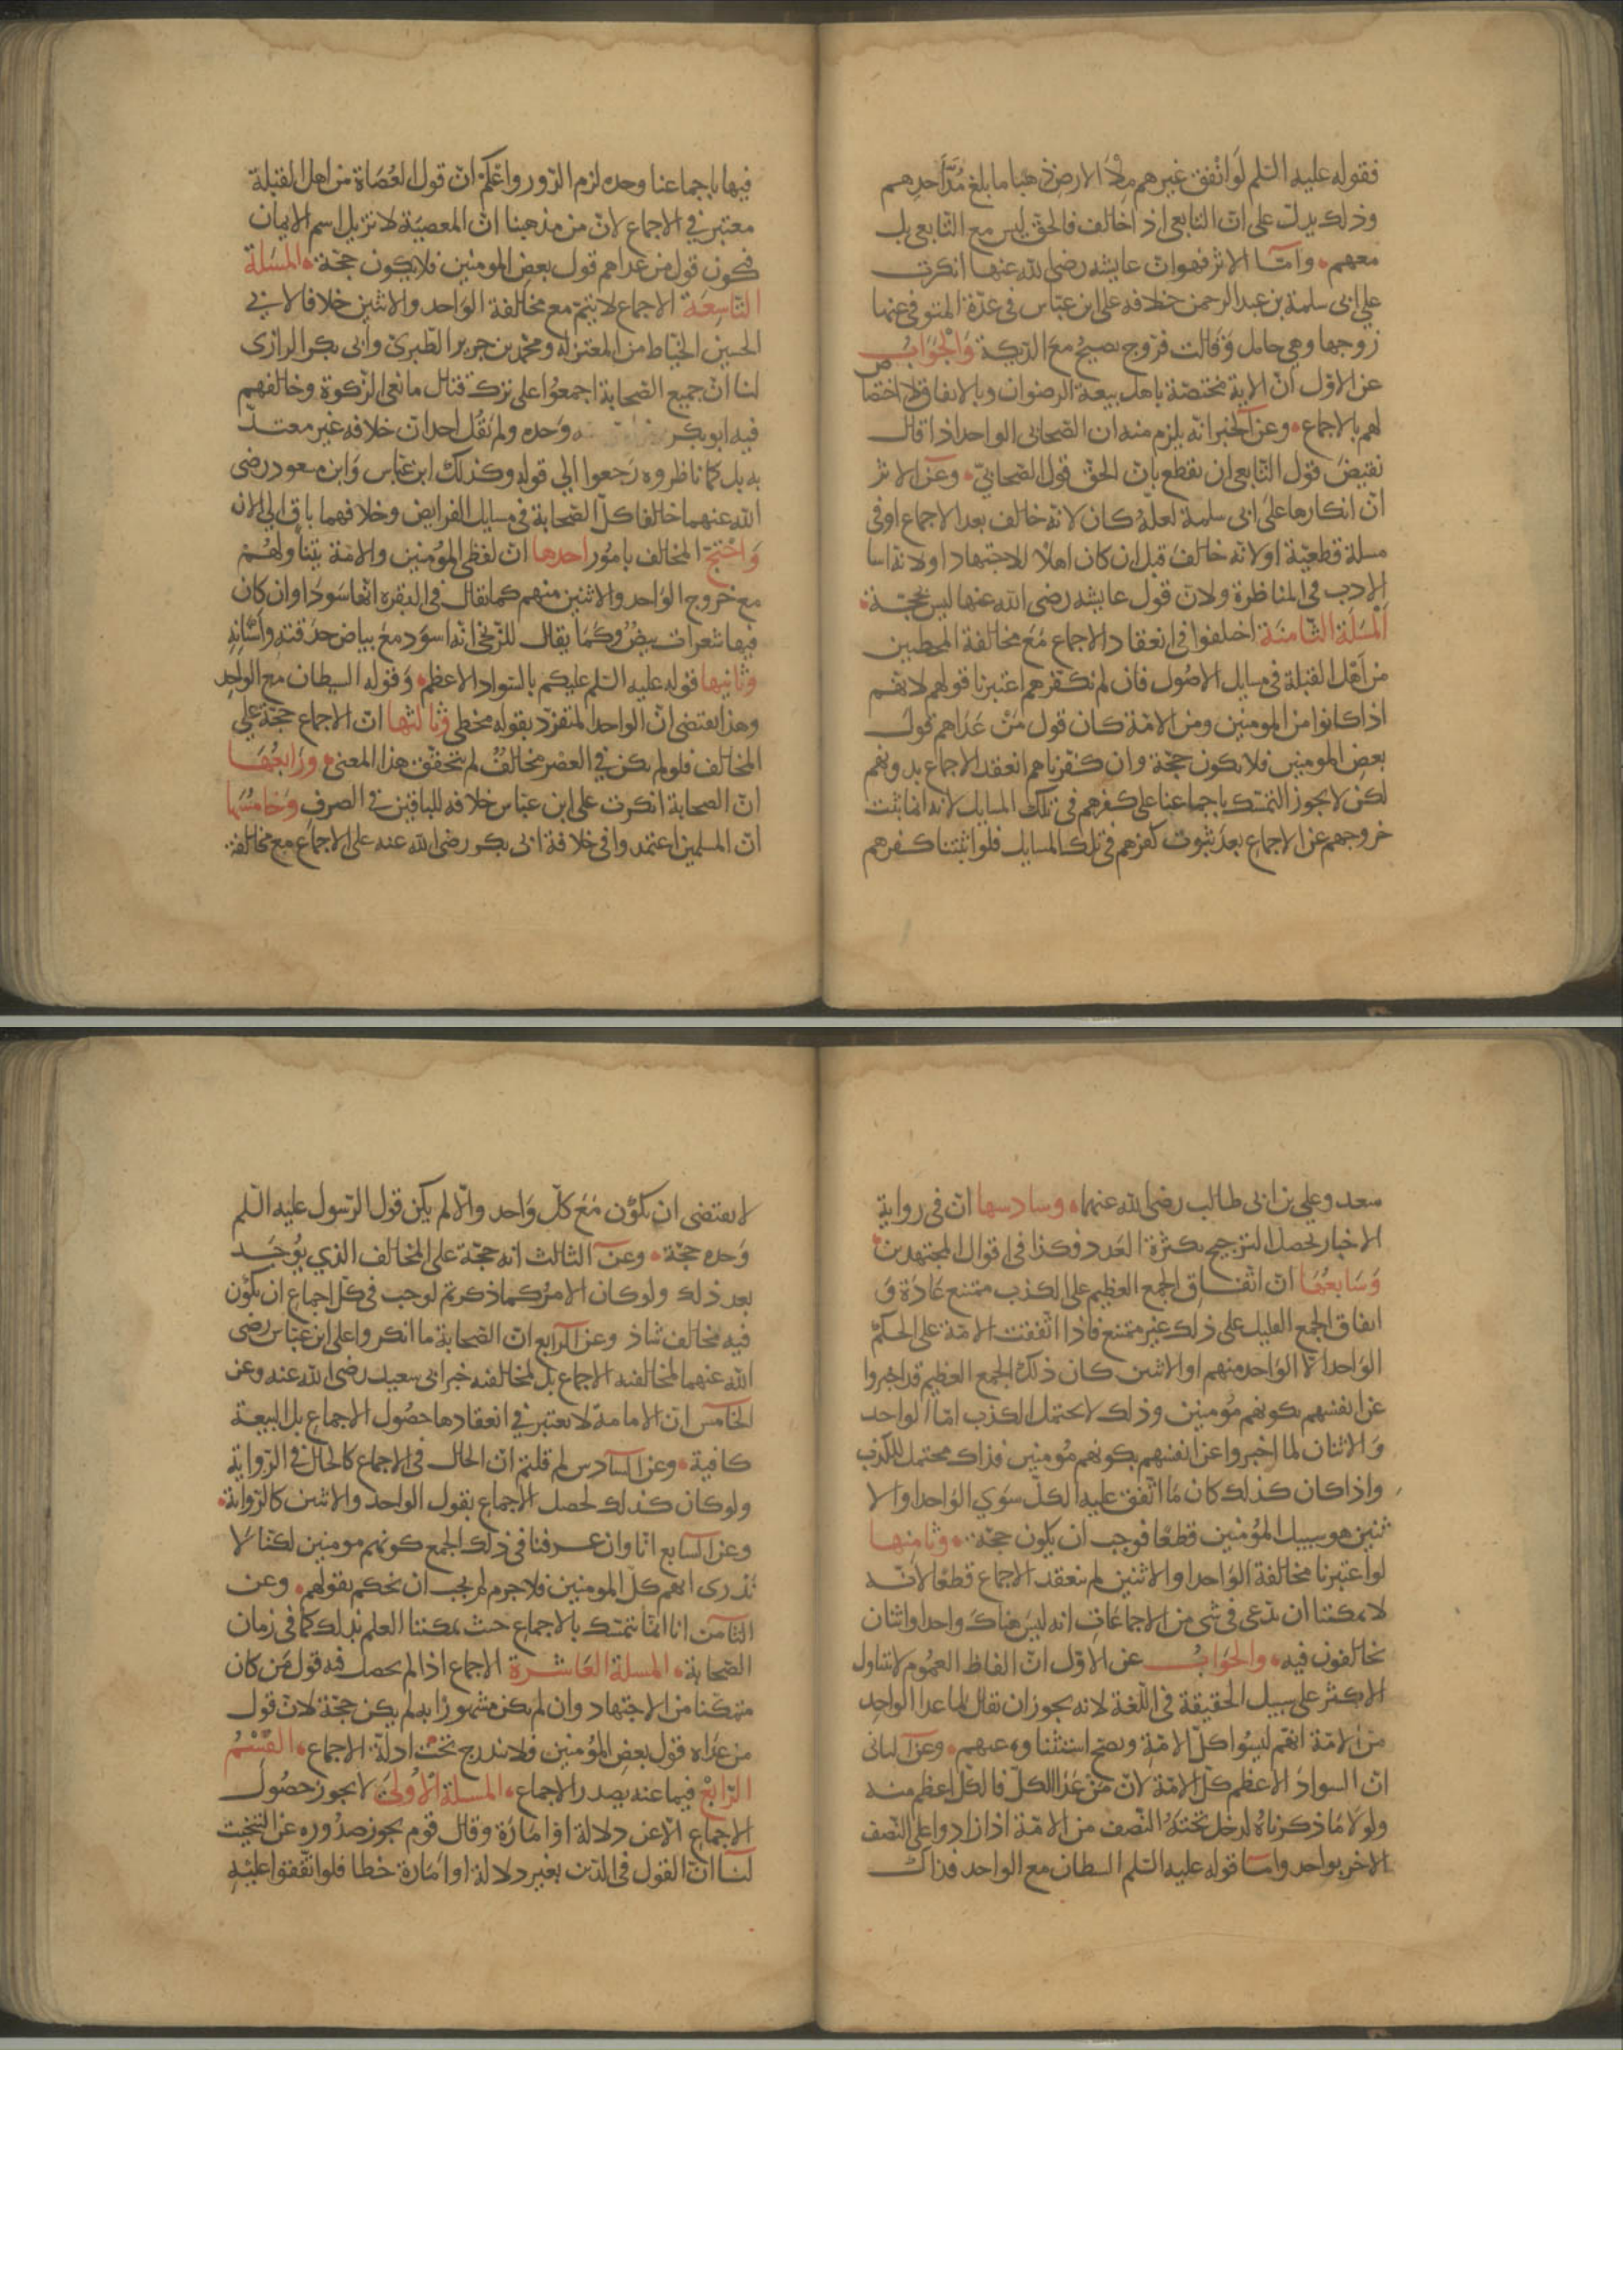 فقوله عليه السلم لو انفق غيرهم ملأ الارض ذهبا ما بلغ مدّ احدهم
وذلك يدل على ان التابعى اذا خالف فالحق ليس مع التابعى بل
معهم وامّا الاثر فهو ان عايشه رضى الله عنها انكرت
على ابى سلمة بن عبد الرحمن خلافه على ابن عبّاس فى عدّة المتوفى عنها
زوجها وهى حامل وقالت فرّوج يصيح مع الديكة والجواب
عن الاوّل انّ الاية مختصّة باهل بيعة الرضوان وبالاتفاق لا اختصاص
لهم بالاجماع وعن الخبر انّه يلزم منه ان الصّحابى الواحد اذا قال
نقيض قول التّابعى ان نقطع بانّ الحقّ قول الصّحابىّ وعن الاثر
انّ انكارها على ابى سلمة لعلّه كان لانّه خالف بعد الاجماع او فى
مسلة قطعيّة او لانّه خالف قبل ان كان اهلا للاجتهاد او لانّه اسا
الادب فى المناظرة ولانّ قول عايشه رضى الله عنها ليس بحجّة
المسلة الثّامنة اختلفوا فى انعقاد الاجماع مع مخالفة المخطيين
من اهل القبلة فى مسايل الاصول فان لم نكفّرهم اعتبرنا قولهم لانّهم
اذا كانوا من المومنين ومن الامّة كان قول من عداهم قول
بعض المومنين فلا يكون حجّة وان كفّرناهم انعقد الاجماع بدونهم
لكن لا يجوز التمسّك باجماعنا على كفرهم فى تلك المسايل لانه انما ثبت
خروجهم عن الاجماع بعد ثبوت كفرهم فى تلك المسايل فلو اثبتنا كفرهم
فيها باجماعنا وحده لزم الدّور واعلم انّ قول العصاة من اهل القبلة
معتبر فى الاجماع لانّ من مذهبنا انّ المعصية لا تزيل اسم الايمان
فيكون قول من عداهم قول بعض المومنين فلا يكون حجّة المسلة
التّاسعة الاجماع لا يتمّ مع مخالفة الواحد والاثنين خلافا لابى
الحسين الخيّاط من المعتزلة ومحمّد بن جرير الطّبرىّ وابى بكر الرازى
لنا انّ جميع الصّحابة اجمعوا على ترك قتال مانعى الزكوة وخالفهم
فيه ابو بكر وحده ولم يقل احد انّ خلافه غير معتدّ
به بل لما ناظروه رجعوا الى قوله وكذلك ابن عبّاس وابن مسعود رضى
الله عنهما خالفا كلّ الصّحابة فى مسايل الفرايض وخلافهما باق الى الان
واحتجّ المخالف بامور احدها انّ لفظى المؤمنين والامّة يتناولهم
مع خروج الواحد والاثنين منهم كما يقال فى البقره انّها سودا وان كان
فيها شعرات بيض وكما يقال للزّنجى انّه اسود مع بياض حدقته واسنانه
وثانيها قوله عليه السلم عليكم بالسّواد الاعظم وقوله الشيطان مع الواحد
وهذا يقتضى انّ الواحد المتفرّد بقوله مخطى وثالثها انّ الاجماع حجّة على
المخالف فلو لم يكن فى العصر مخالف لم يتحقّق هذا المعنى ورابعها
انّ الصحابة انكرت على ابن عبّاس خلافه للباقين فى الصرف وخامسها
انّ المسلمين اعتمدوا فى خلافة ابى بكر رضى الله عنه على الاجماع مع مخالفة
سعد وعلى بن ابى طالب رضى الله عنهما وسادسها انّ فى رواية
الاخبار يحصل الترجيح بكثرة العدد فكذا فى اقوال المجتهدين
وسابعها انّ اتّفاق الجمع العظيم على الكذب ممتنع عادة و
اتفاق الجمع القليل على ذلك غير ممتنع فاذا اتّفقت الامّة على الحكم
الواحد الّا الواحد منهم او الاثنين كان ذلك الجمع العظيم قد اخبروا
عن انفسهم بكونهم مؤمنين وذلك لا يحتمل الكذب امّا الواحد
والاثنان لما اخبروا عن انفسهم بكونهم مؤمنين فذاك محتمل للكذب
واذا كان كذلك كان ما اتّفق عليه الكلّ سوى الواحد او الا
ثنين هو سبيل المؤمنين قطعا فوجب ان يكون حجّة وثامنها
لو اعتبرنا مخالفة الواحد او الاثنين لم ينعقد الاجماع قطعا لانّه
لا يمكننا ان ندّعى فى شى من الاجماعات انه ليس هناك واحد او اثنان
يخالفون فيه والجواب عن الاوّل انّ الفاظ العموم لا يتناول
الاكثر على سبيل الحقيقة فى اللّغة لانه يجوز ان يقال لما عدا الواحد
من الامّة انّهم ليسوا كلّ الامّة ويصحّ استثناوه عنهم وعن الثانى
انّ السواد الاعظم كلّ الامّة لانّ من عدا الكلّ فالكلّ اعظم منه
ولولا ما ذكرناه لدخل تحته النّصف من الامّة اذا زادوا على النّصف
الاخر بواحد وامّا قوله عليه السّلم الشيطان مع الواحد فذاك
لا يقتضى ان يكون مع كلّ واحد والّا لم يكن قول الرّسول عليه السّلم
وحده حجّة وعن الثالث انه حجّة على المخالف الذى يوجد
بعد ذلك ولو كان الامر كما ذكرتم لوجب فى كلّ اجماع ان يكون
فيه مخالف شاذ وعن الرابع انّ الصّحابة ما انكروا على ابن عبّاس رضى
الله عنهما لمخالفته الاجماع بل لمخالفته خبر ابى سعيد رضى الله عنه وعن
الخامس انّ الامامة لا يعتبر فى انعقادها حصول الاجماع بل البيعة
كافية وعن السادس لم قلتم انّ الحال فى الاجماع كالحال فى الرّواية
ولو كان كذلك لحصل الاجماع بقول الواحد والاثنين كالرّواية
وعن السابع انّا وان عرفنا فى ذلك الجمع كونهم مومنين لكنّا لا
ندرى انّهم كلّ المومنين فلا جرم لم يجب ان نحكم بقولهم وعن
الثامن انا انّما نتمسّك بالاجماع حيث يمكننا العلم بذلك كما فى زمان
الصّحابة المسلة العاشرة الاجماع اذا لم يحصل فيه قول من كان
متمكّنا من الاجتهاد وان لم يكن مشهورا به لم يكن حجّة لانّ قول
من عداه قول بعض المؤمنين فلا يندرج تحت ادلّة الاجماع القسم
الرّابع فيما عنه يصدر الاجماع المسلة الاولى لا يجوز حصول
الاجماع الّا عن دلالة او امارة وقال قوم يجوز صدوره عن التبخيت
لنا انّ القول فى الدّين بغير دلالة او امارة خطا فلو اتّفقوا عليه